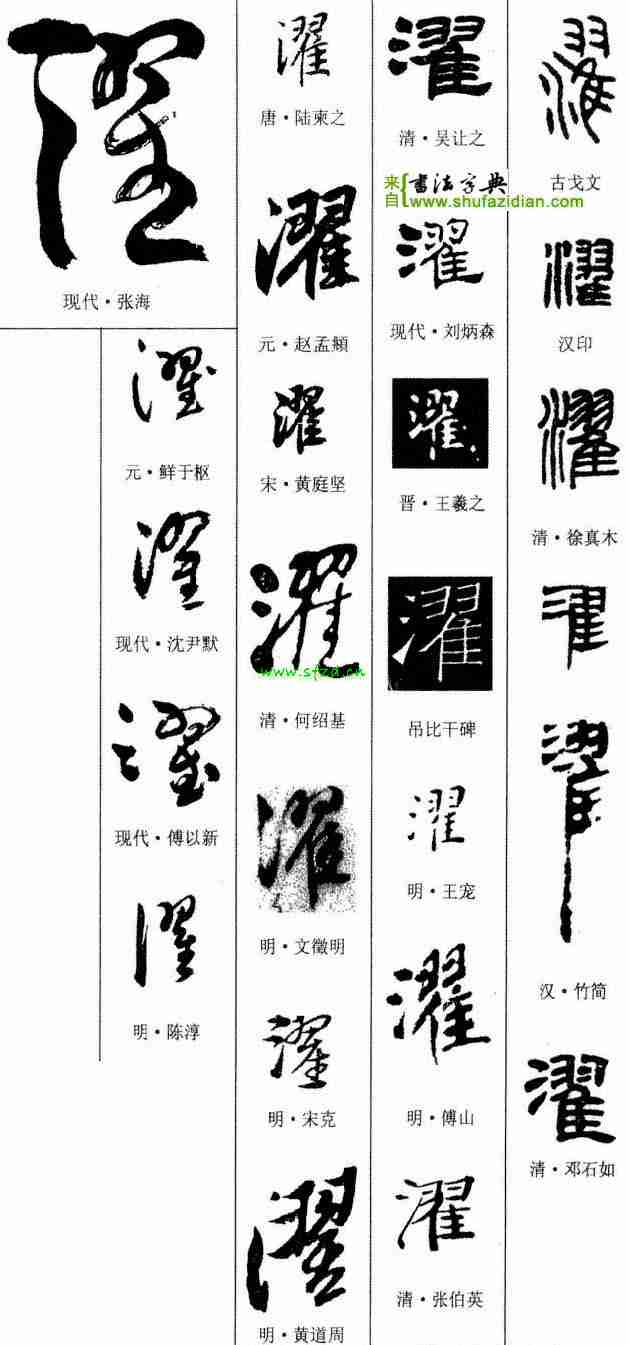 濯
古戈文
濯
汉印
濯
清·徐真木
濯
濯
汉·竹简
濯
清·邓石如
濯
清·吴让之
来自{書法字典
www.shufazidian.com
濯
现代·刘炳森
濯
晋·王羲之
濯
吊比干碑
濯
明·王宠
濯
明·傅山
濯
清·张伯英
濯
唐·陆柬之
濯
元·赵孟頫
濯
宋·黄庭坚
濯
www.sfzd.cn
清·何绍基
濯
明·文徵明
濯
明·宋克
濯
明·黄道周
濯
现代·张海
濯
元·鲜于枢
濯
现代·沈尹默
濯
现代·傅以新
濯
明·陈淳